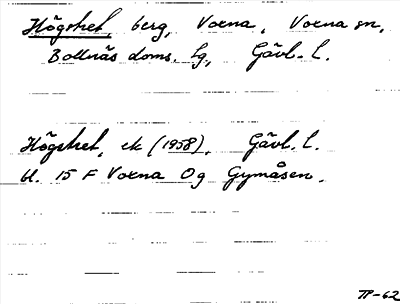 Högstret, berg, Voxna, Voxna sn,
Bollnäs doms. lg, Gävl. l.
Högstret, ek (1958), Gävl. l.
bl. 15 F Voxna Og Gymåsen.
TP-62